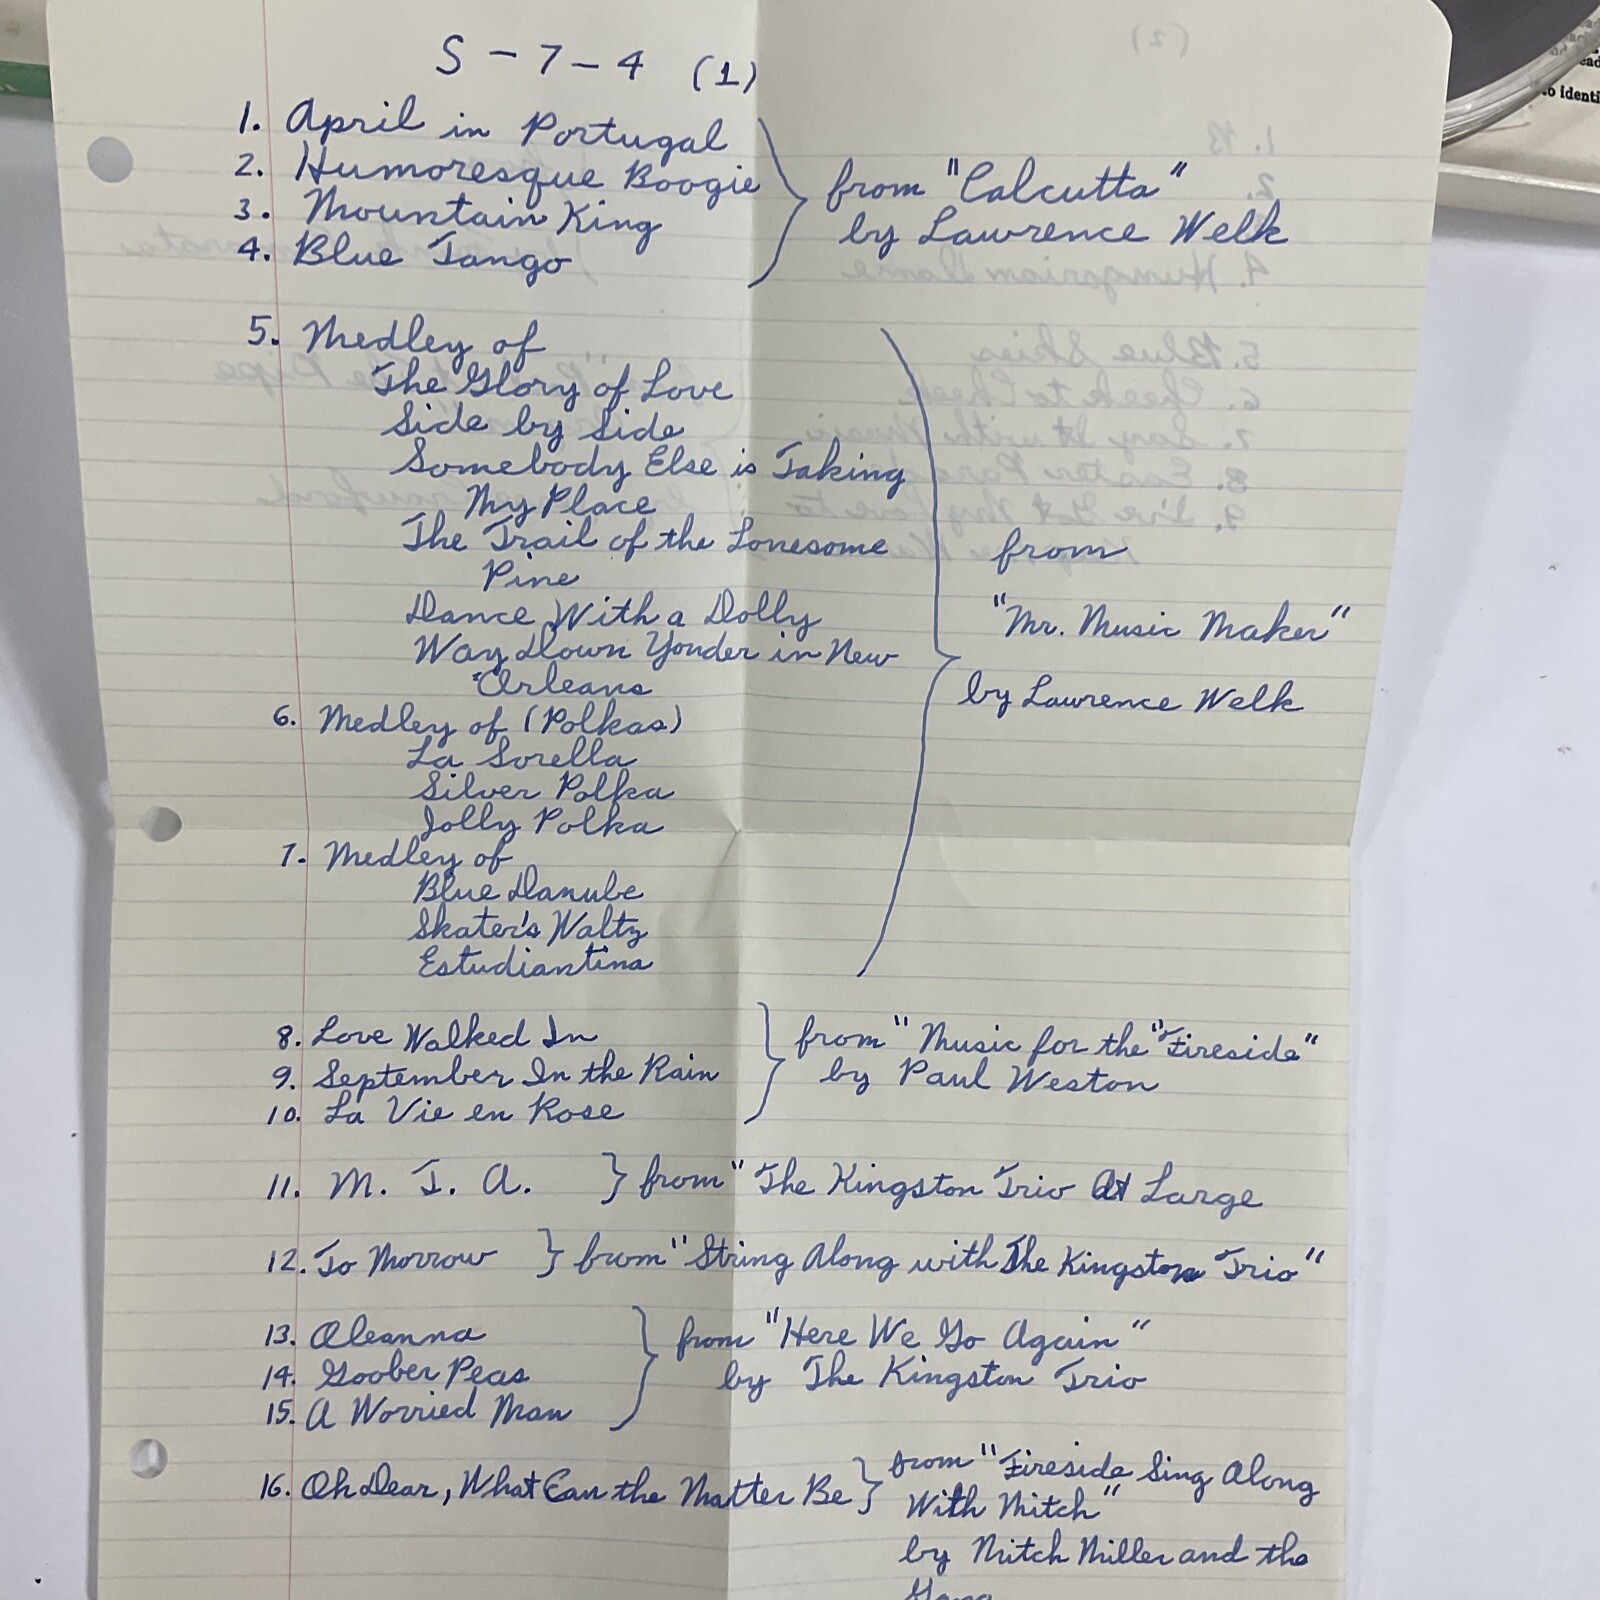 S-7-4 (1)
1. April in Portugal
2. Humoresque Boogie
3. Mountain King
4. Blue Tango
from "Calcutta"
by Lawrence Welk
5. Medley of
The Glory of Love
Side by Side
Somebody Else is Taking
My Place
The Trail of the Lonesome
Pine
Dance With a Dolly
Way Down Yonder in New
Orleans
6. Medley of (Polkas)
La Sorella
Silver Polka
Jolly Polka
7. Medley of
Blue Danube
Skater's Waltz
Estudiantina
from
"Mr. Music Maker"
by Lawrence Welk
8. Love Walked In
9. September In the Rain
10. La Vie en Rose
from "Music for the "Fireside"
by Paul Weston
11. M. T. A. } from "The Kingston Trio At Large
12. To Morrow } from "String Along with The Kingston Trio"
13. Oleanna
14. Goober Peas
15. A Worried Man
from "Here We Go Again"
by The Kingston Trio
16. Oh Dear, What Can the Matter Be } from "Fireside Sing Along
With Mitch"
by Mitch Miller and the
Gang
(2)
1.
2.
4. Hungarian Dance
5. Blue Skies
6. Cheek to Cheek
7. Say It with Music
8. Easter Parade
9. I've Got My Love to
to identi